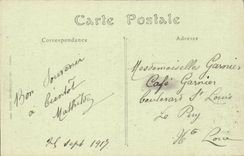 Carte Postale
Correspondance
Adresse
Bon Souvenir
à bientôt
Mathilde
26 Sept 1917
Mesdemoiselle Garnier
Café Garnier
boulevart St Louis
Le Puy
Hte Loire